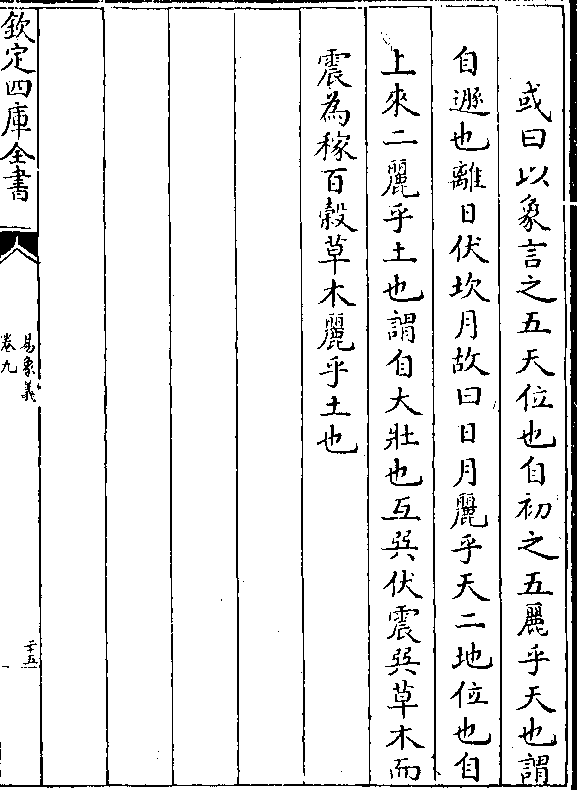 或曰以象言之五天位也自初之五麗乎天也謂
自遯也離日伏坎月故曰日月麗乎天二地位也自
上來二麗乎土也謂自大壯也互巽伏震巽草木而
震為稼百穀草木麗乎土也
欽定四庫全書
易象義
卷九
二十五